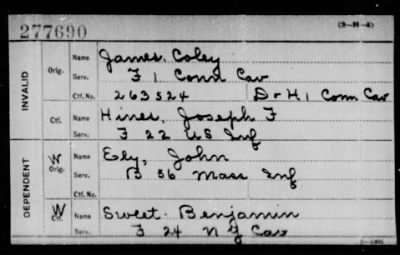 277690 (3-H-4)
INVALID
Orig. Name James, Coley
Serv. F 1 Conn Cav
Ctf. No. 263524 D+H 1 Conn Cav
Ctf. Name Hines, Joseph F
Serv. F 22 US Inf
DEPENDENT
W Orig. Name Ely, John
Serv. B 36 Mass Inf
Ctf. No.
W Ctf. Name Sweet Benjamin
Serv. F 24 N Y Cav